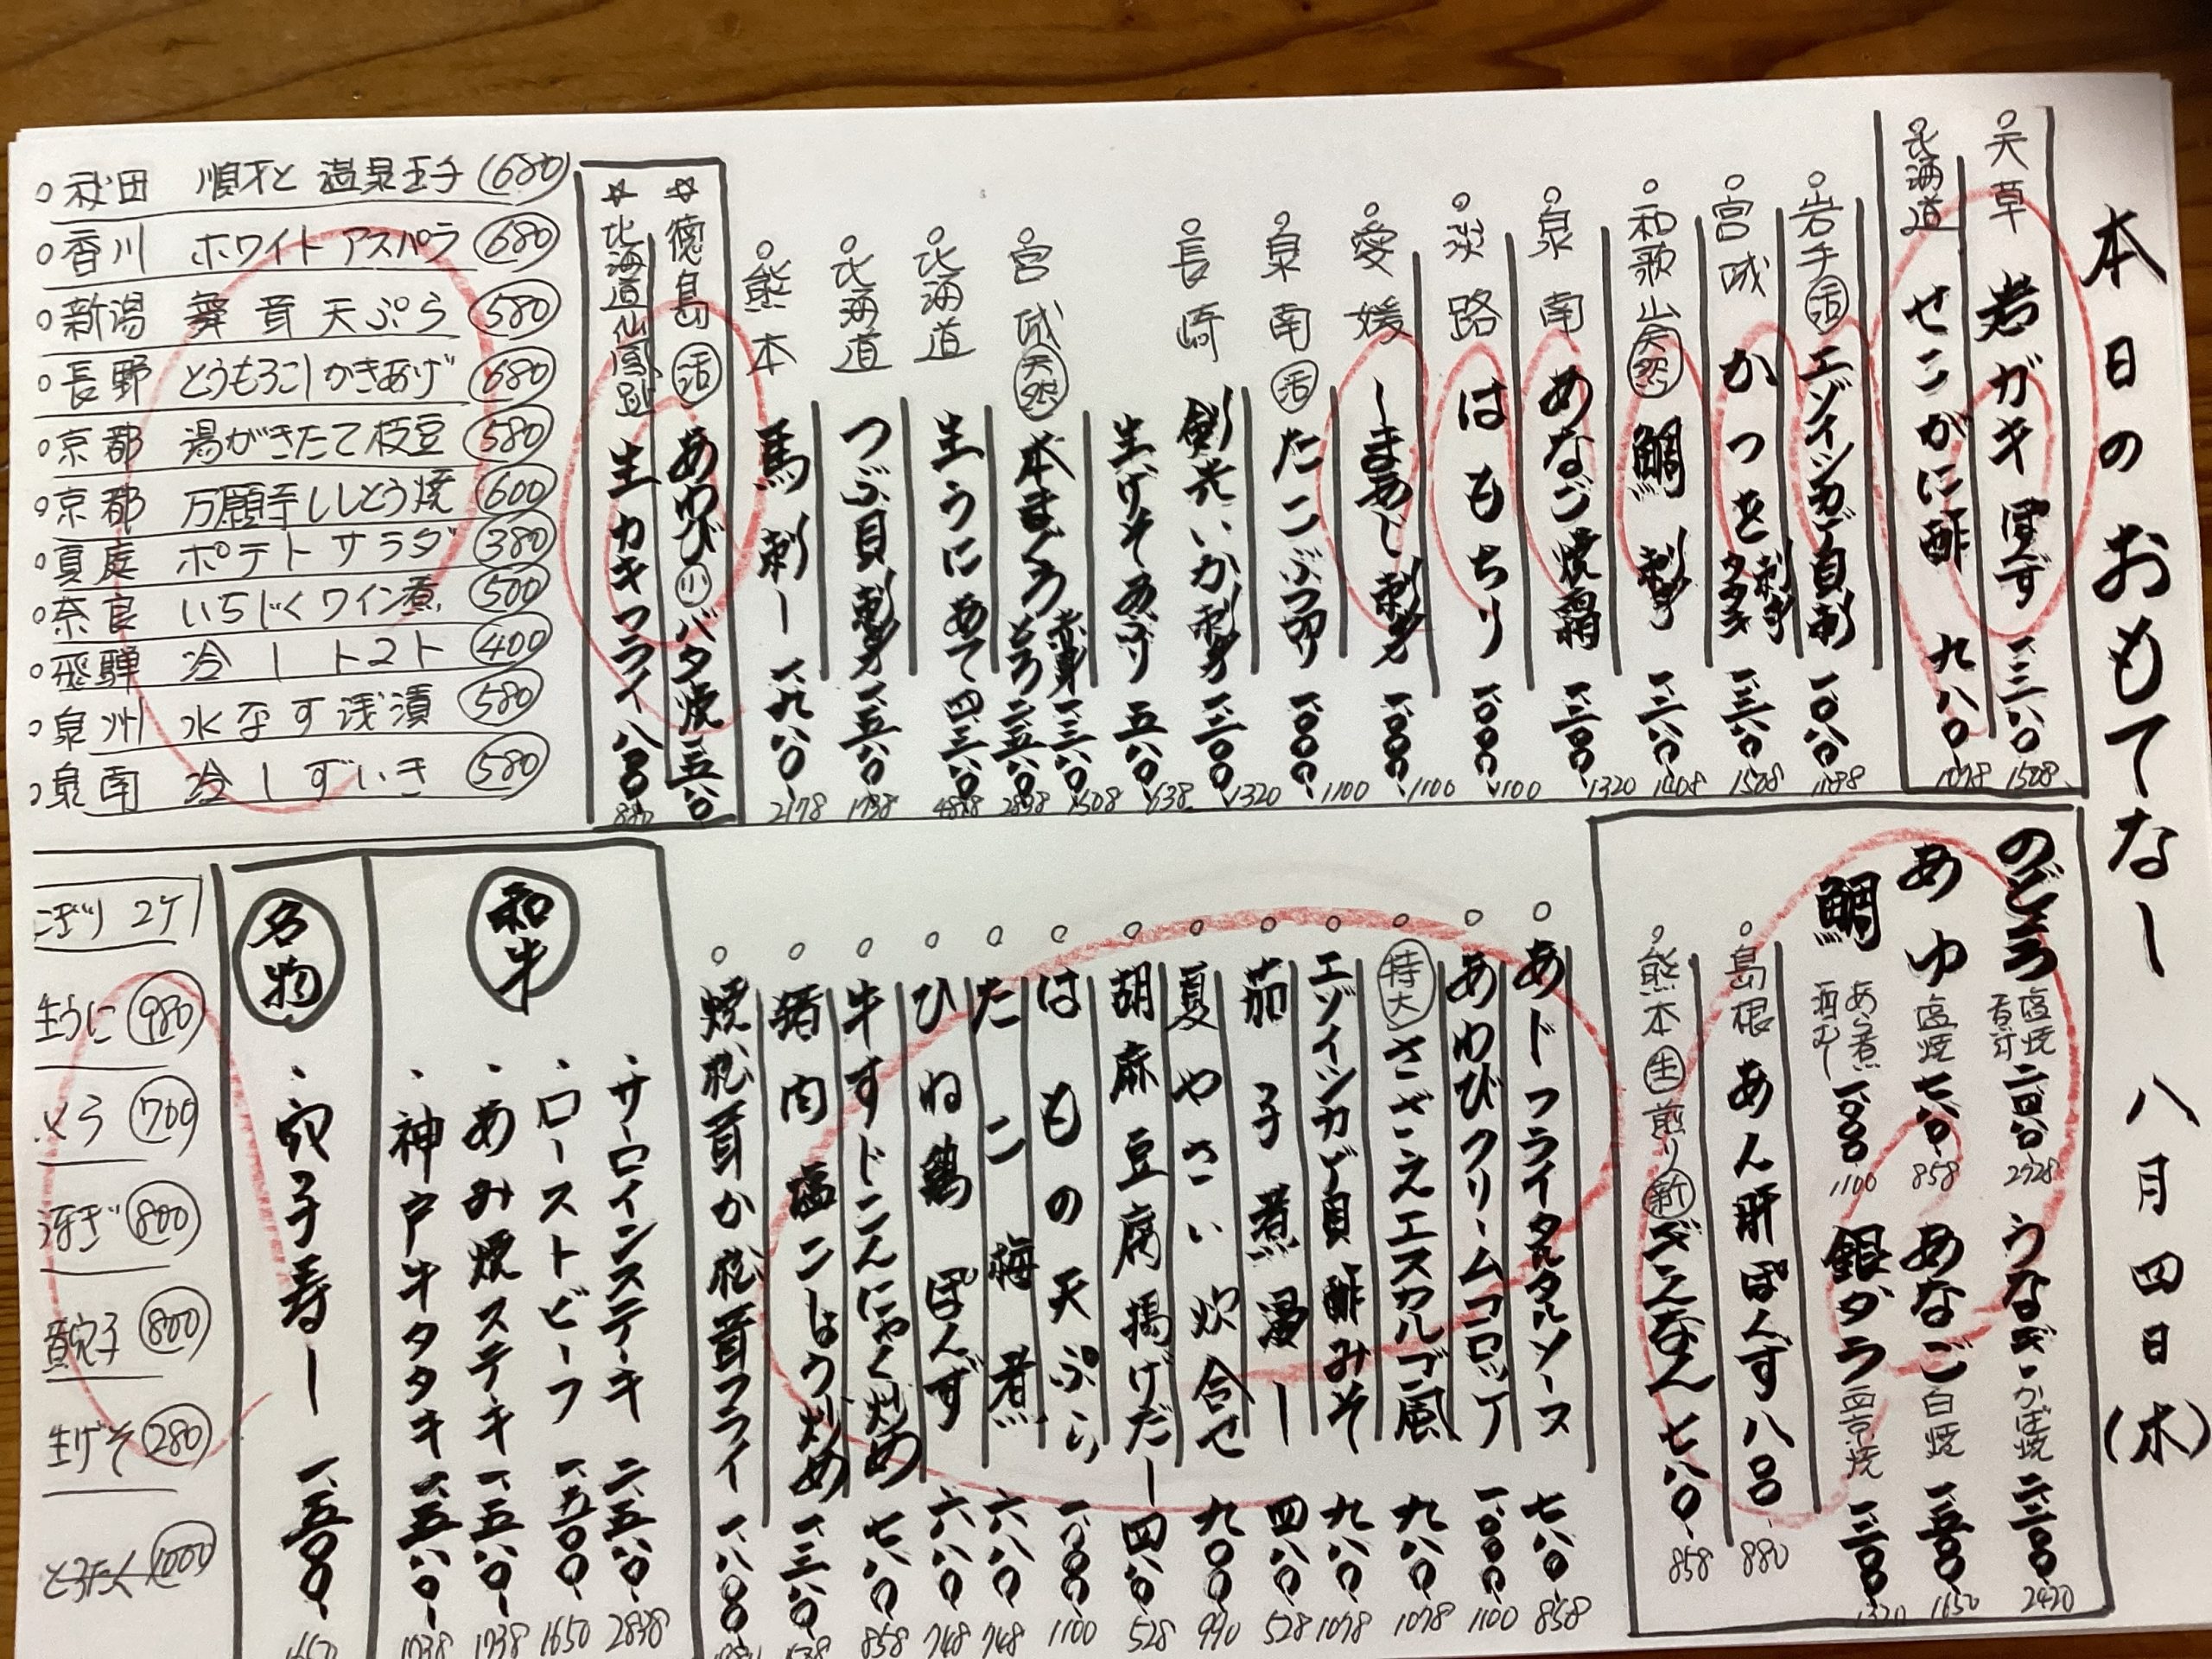 本日のおもてなし 八月四日(水)
天草 岩ガキぽんず 一、三八〇 1508
北海道 せこがに酢 九八〇 1078
岩手 活 エゾイシカゲ貝刺 一、〇八〇 1188
宮城 かつを 刺身 タタキ 一、三八〇 1508
和歌山 天然 鯛 刺身 一、二八〇 1408
泉南 あなご焼霜 一、二〇〇 1320
淡路 はもちり 一、〇〇〇 1100
愛媛 しまあじ刺身 一、〇〇〇 1100
泉南 活 たこぶつ切り 一、〇〇〇 1100
長崎 剣先いか刺身 一、二〇〇 1320
生げそ造り 五八〇 638
宮城 天然 本まぐろ 赤身 一、三八〇 1508 とろ 二、五八〇 2838
北海道 生うにあて 四、三八〇
北海道 つぶ貝刺身 一、五八〇 1738
熊本 馬刺し 一、九八〇 2178
☆徳島 活 あわび 小 バタ焼
☆北海道仙鳳趾 生カキフライ 八〇〇 880
○秋田 順才と温泉玉子 680
○香川 ホワイトアスパラ 680
○新潟 舞茸天ぷら 580
○長野 とうもろこしかきあげ 680
○京都 湯がきたて枝豆 580
○京都 万願寺ししとう焼 600
○真庭 ポテトサラダ 380
○奈良 いちじくワイン煮 500
○飛騨 冷しトマト 400
○泉州 水なす浅漬 580
○泉南 冷しずいき 580
のどぐろ 塩焼 煮付 二、四八〇 2728 うなぎ かば焼 二、二〇〇 2420
あゆ 塩焼 七八〇 858 あなご 白焼 一、五〇〇 1650
鯛 あら煮 酒むし 一、〇〇〇 1100 銀ダラ 西京焼 一、二〇〇 1320
島根 あん肝ぽんず 八〇〇 880
熊本 生 煎り 新 ぎんなん 七八〇 858
あじフライタルタルソース 七八〇 858
あわびクリームコロッケ 一、〇〇〇 1100
特大 さざえエスカルゴ風 九八〇 1078
エゾイシカゲ貝酢みそ 九八〇 1078
茄子煮浸し 四八〇 528
夏やさい炊合せ 九〇〇 990
胡麻豆腐揚げだし 四八〇 528
はもの天ぷら 一、〇〇〇 1100
たこ梅煮 六八〇 748
ひね鶏ぽんず 六八〇 748
牛すじこんにゃく炒め 七八〇 858
猪肉塩こしょう炒め
焼松茸か松茸フライ 一、八〇〇
和牛
・サーロインステーキ 二、五八〇 2838
・ローストビーフ 一、五〇〇 1650
・あみ焼ステーキ 一、五八〇 1738
・神戸牛タタキ 一、五八〇 1738
名物
・穴子寿し 一、五〇〇 1650
にぎり 2ケ
生うに 980
とろ 700
800
800
生げそ 280
とろたく 1000